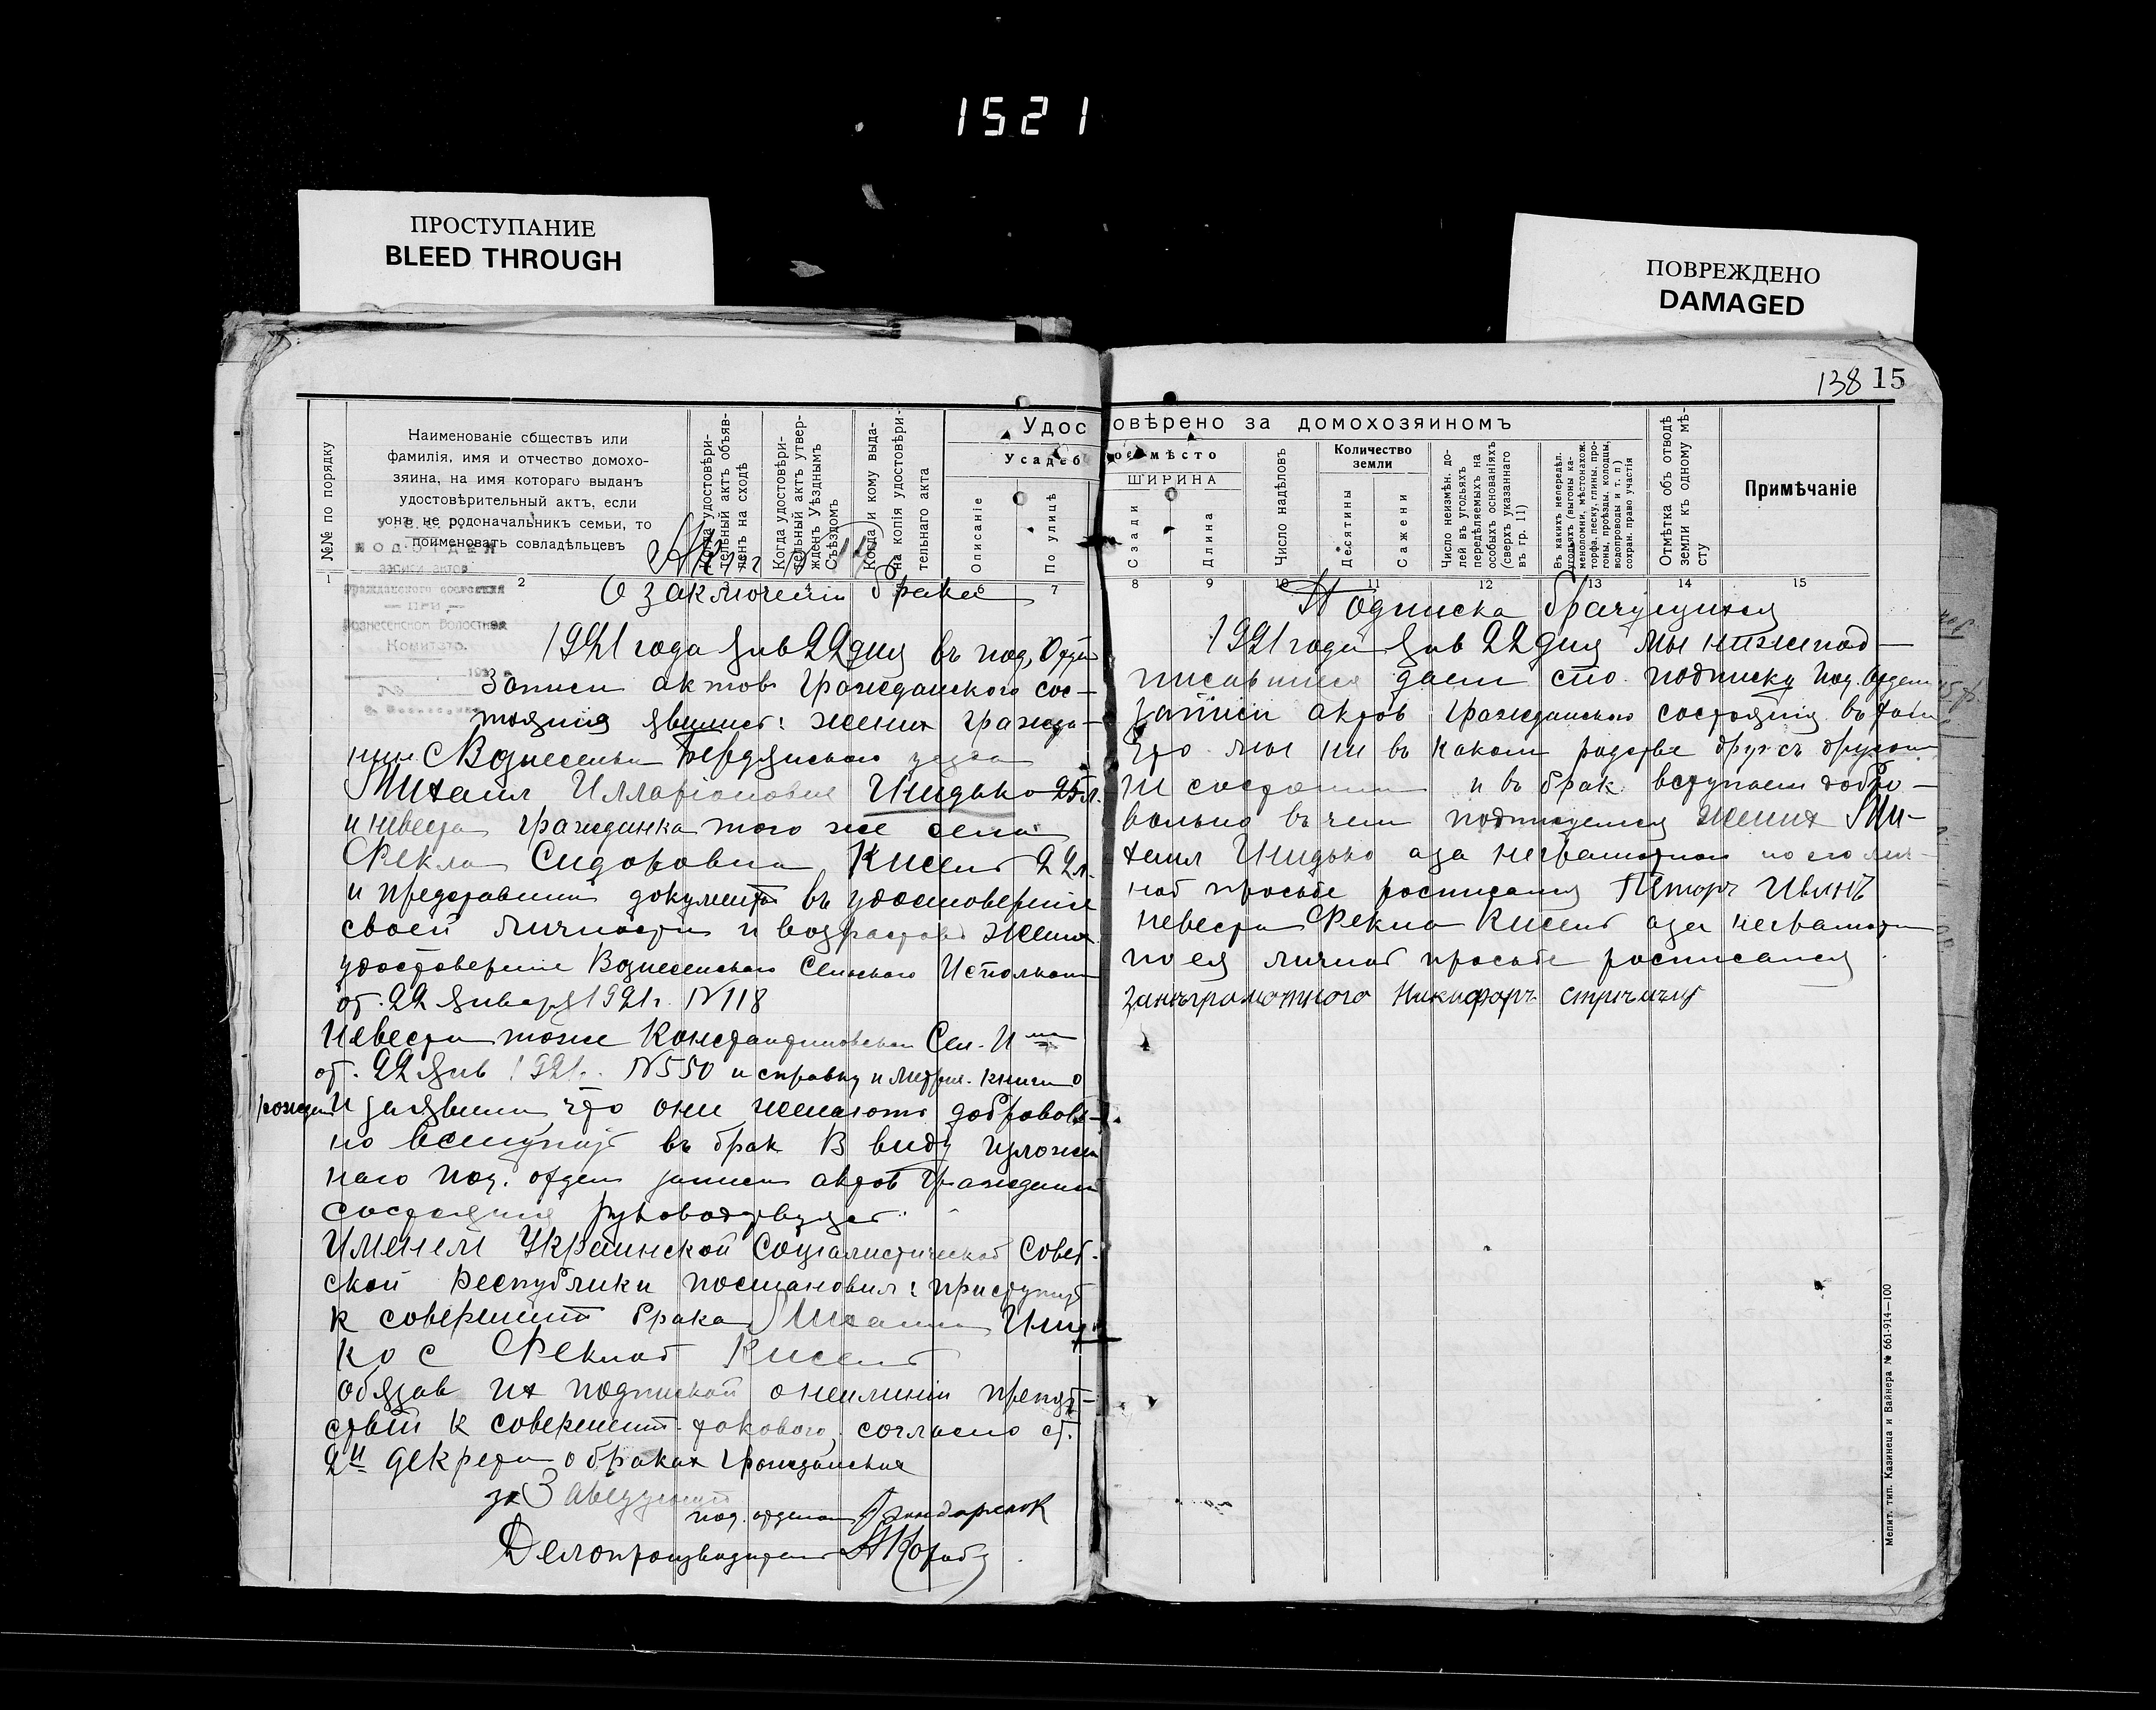 1521
ПРОСТУПАНИЕ
BLEED THROUGH
ПОВРЕЖДЕНО
DAMAGED
138 15
№№ по порядку
Наименованіе сбществъ или
фамилія, имя и отчество домохо-
зяина, на имя котораго выданъ
удостовѣрительный актъ, если
онъ не родоначальникъ семьи, то
поименовать совладѣльцевъ
Когда удостовѣри-
тельный актъ объяв-
ленъ на сходѣ
Когда удостовѣри-
тельный актъ утвер-
жденъ Уѣзднымъ
Съѣздомъ
Когда и кому выда-
на копія удостовѣри-
тельнаго акта
Удостовѣрено за домохозяиномъ
Усадебное мѣсто
Описаніе
По улицѣ
ШИРИНА
Сзади
Длина
Число надѣловъ
Количество
земли
Десятины
Сажени
Число неизмѣн. до-
лей въ угодьяхъ
передѣляемыхъ на
особыхъ основаніяхъ
(сверхъ указаннаго
въ гр. 11)
Въ какихъ непередѣл.
угодьяхъ (выгоны ка-
меноломни, мѣстонахож.
торфа, песку, глины, про-
гоны, проѣзды, колодцы,
водопроводы и т. п)
сохран. право участія
Отмѣтка объ отводѣ
земли къ одному мѣ-
сту
Примѣчаніе
1 2 3 4 6 7 8 9 10 11 12 13 14 15
У. С. С. Р.
ПОДОТДЕЛ
записи актов
Гражданского состояния
— ПРИ —
Вознесенском Волостном
Комитете.
Актъ № 14
О заключеніи брака
1921 года Янв 22 дня въ под. Отдел
Записи актов Гражданского сос-
тояния явились: жених гражда-
нин С Вознесенки Бердянского уезда
Михаил Илларионович Гнидько 25 л.
и невеста гражданка того же села
Фекла Сидоровна Кисель 22 л.
и представили документы въ удостоверение
своей личности и возрастов Жених
удостоверение Вознесенского Сельского Исполком
от. 22 Января 1921 г. № 118
Невеста тоже Константиновского Сел. И
от. 22 Янв 1921 г. № 550 и справку и Метрич. книги о
рожден И заявили что они желают доброволь-
но вступить въ брак В виду изложен
наго под. отдел записи актов Граждан
состояния руководствуясь
Именем Украинской Социалистической Совет-
ской Республики постановил: приступить
к совершению брака Михаила Гнидь
ко с Феклой Кисель
обязав их подпиской о неимении препят-
ствий к совершению такового, согласно ст.
декрета о браках Гражданских
за Заведующего
под. отделом Бондаренок
Делопроизводитель
Подписка брачущихся
1921 года Янв 22 дня Мы нижепод-
писавшиеся даем сию подписку Под. Отдел
записи актов Гражданского состояния въ том
что мы ни въ каком родстве друг съ другом
не состоим и въ брак вступаем добро-
вольно въ чем подписуемся Жених Ми-
хаил Гнидько а за неграмотного по его лич-
ной просьбе росписался Петоръ Ивинъ
невеста Фекла Кисель а за неграмотн
по ея личной просьбе росписался
занѣграмотного Никифоръ
Мелит. тип. Казинеца и Вайнера № 661-914—100